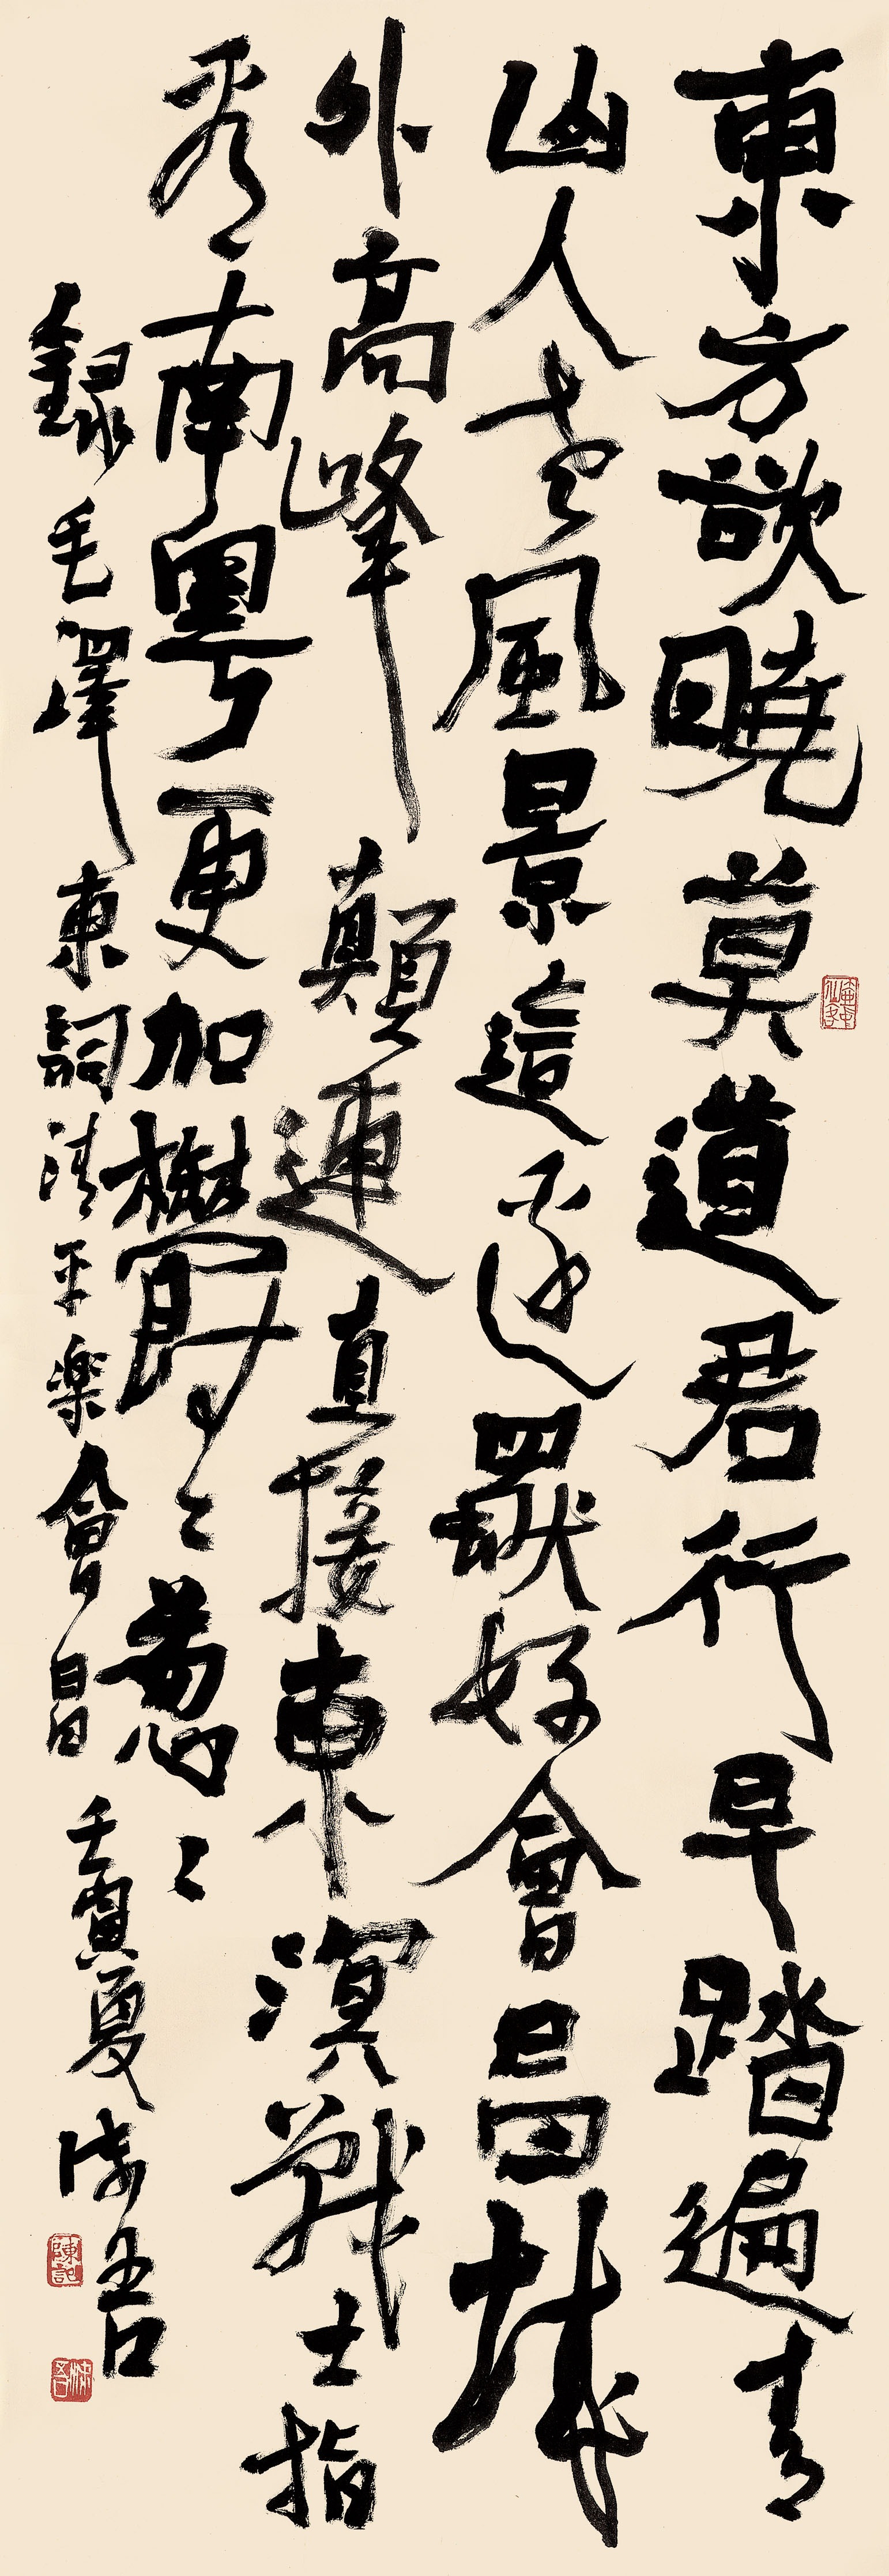 東方欲曉莫道君行早踏遍青
山人老風景這邊獨好會昌城
外高峰顛連直接東溟戰士指
看南粵更加欝〻葱〻
録毛澤東詞清平楽會昌壬寅夏吾